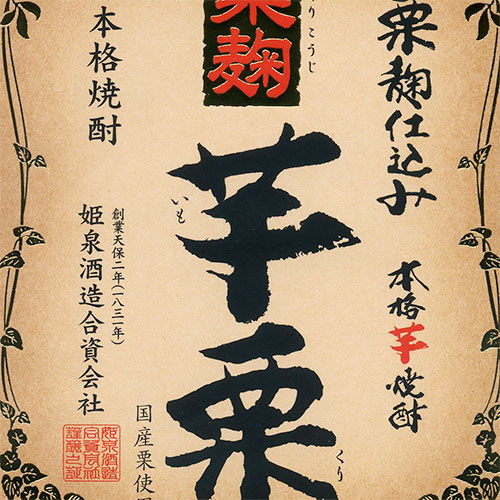 栗麹仕込み
本格芋焼酎
りこうじ
栗麹
芋栗
いも
くり
国産栗使用
本格焼酎
創業天保二年(一八三一年)
姫泉酒造合資会社